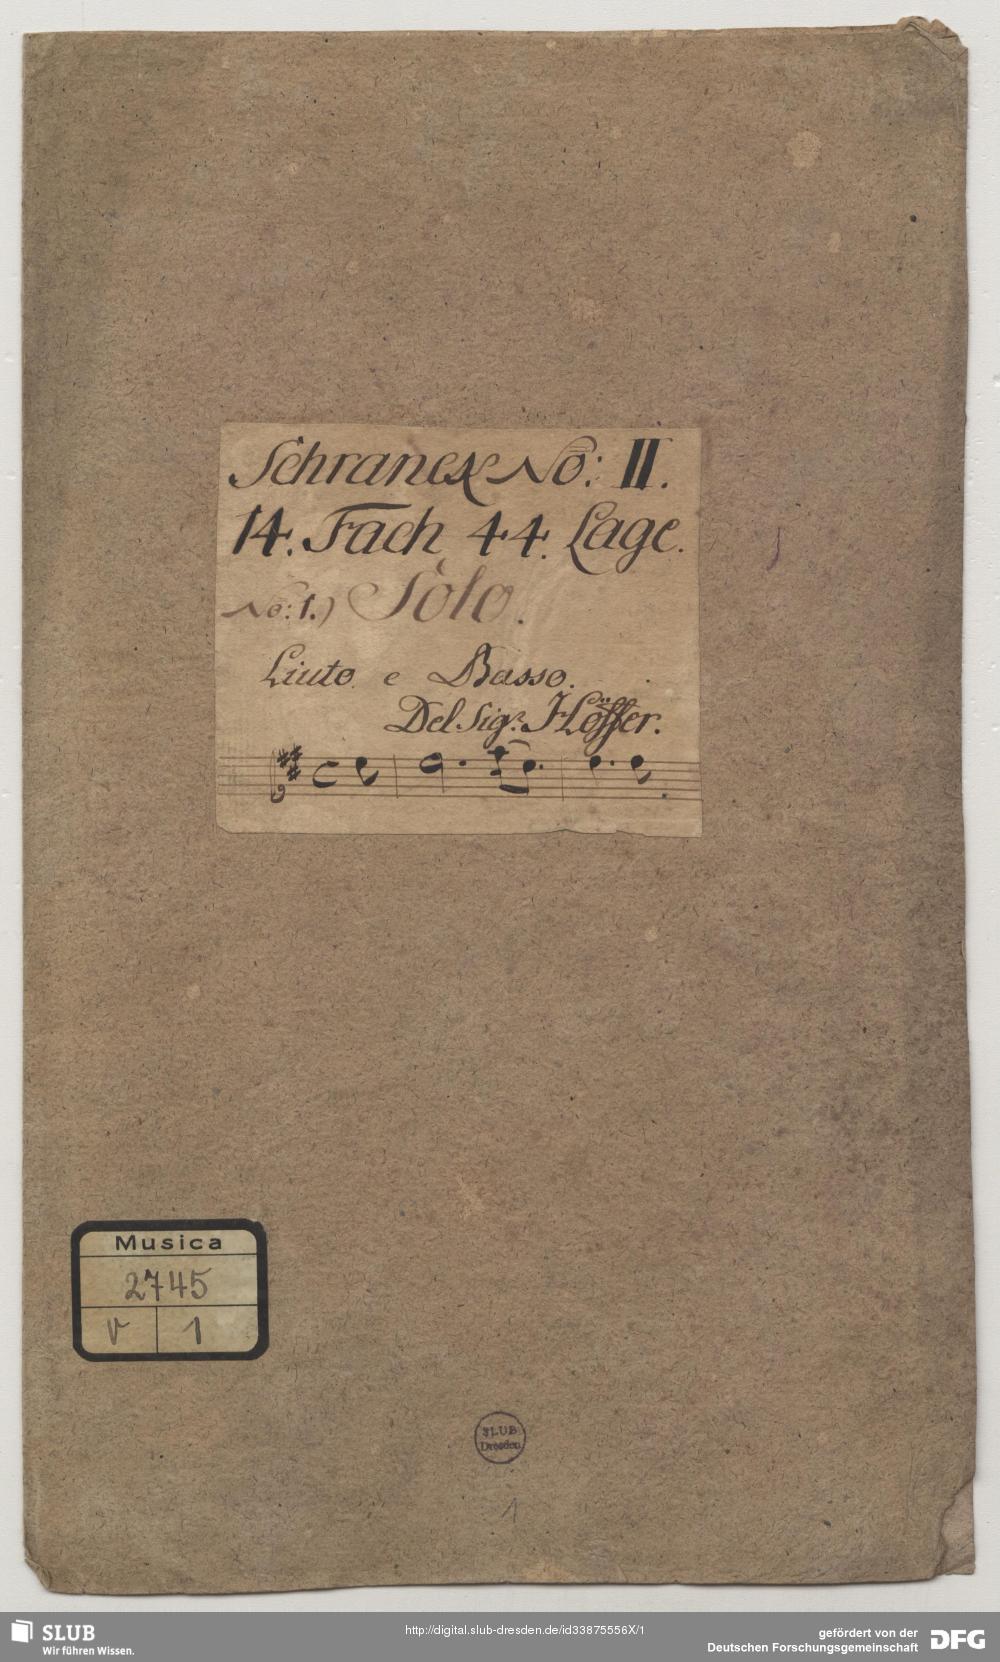 Schranck No: II.
14. Fach 44. Lage.
No: 1.) Solo.
Liuto e Basso.
Del Sigr. Höffer.
Musica
2745
V 1
SLUB
Dresden
1
SLUB
Wir führen Wissen.
http://digital.slub-dresden.de/id33875556X/1
gefördert von der
Deutschen Forschungsgemeinschaft
DFG